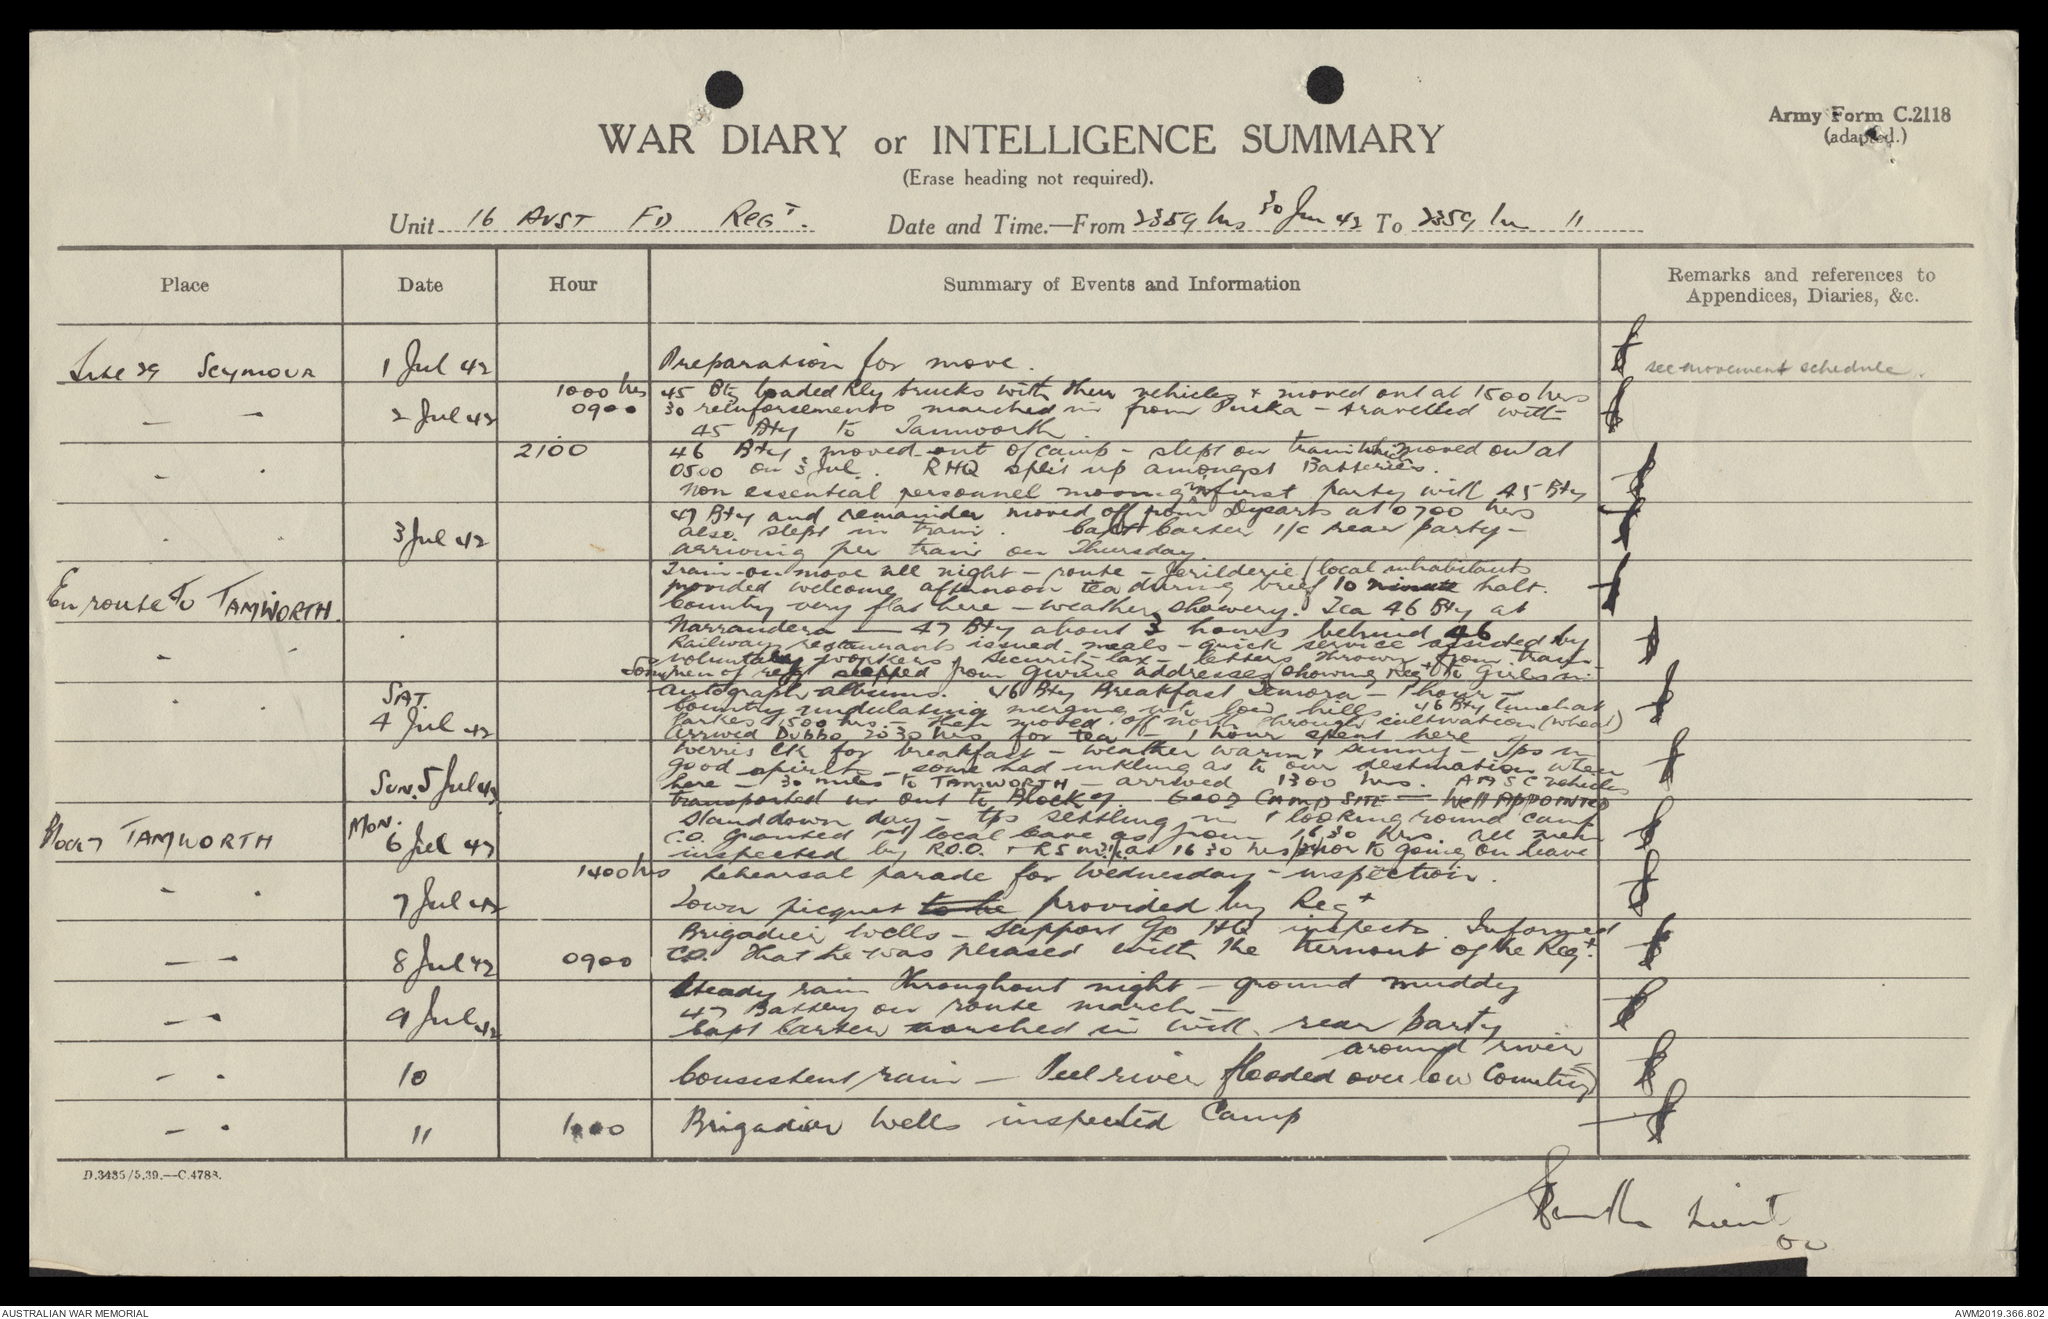 Army Form C.2118
(adapted.)
WAR DIARY or INTELLIGENCE SUMMARY
(Erase heading not required).
Unit 16 AUST FD REGT. Date and Time.—From 2359 hrs 30 Jun 42 To 2359 hrs 11
Place Date Hour Summary of Events and Information Remarks and references to Appendices, Diaries, &c.
Site 29 SEYMOUR 1 Jul 42 Preparation for move. see movement schedule.
1000 hrs 45 Bty loaded Rly trucks with their vehicles & moved out at 1500 hrs
2 Jul 42 0900 30 reinforsements marched in from Puska - travelled with
45 Bty to Tamworth
2100 46 Bty moved out of camp - slept on train which moved out at
0500 on 3 Jul. RHQ split up amongst Batteries.
Non essential personnel moving in first party with 45 Bty
47 Bty and remainder moved off from Dysarts at 0700 hrs
3 Jul 42 also slept in train. Capt Carter i/c rear party -
arriving per train on Thursday.
Train on move all night - route - Jerilderie (local inhabitants
En route To TAMWORTH. provided welcome afternoon tea during brief 10 minute halt.
Country very flat here - weather showery. Tea 46 Bty at
Narrandera - 47 Bty about 3 hours behind 46
Railways restaurants issued meals - quick service assisted by
voluntary workers security lax - letters thrown from train
Some men of regt stopped from giving addresses (showing Regt) to Girls in
SAT. autograph albums. 46 Bty Breakfast Temora - 1 hour -
4 Jul 42 Country undulating merging into low hills. 46 Bty lunch at
Parkes 1500 hrs. - then moved off north through cultivation (wheat)
Arrived Dubbo 2030 hrs for tea - 1 hour spent here
Werris Ck for breakfast - weather warm & sunny - Tps in
SUN. 5 Jul 42 good spirits - some had inkling as to our destination when
here - 30 miles to TAMWORTH - arrived 1300 hrs. AASC vehicles
transported us out to Block 7. GOOD CAMP SITE - Well APPOINTED
Block 7 TAMWORTH MON. 6 Jul 42 Stand down day - tps settling in & looking round camp
C.O. granted local leave as from 1630 hrs. All men
inspected by R.O.O. & RSM at 1630 hrs prior to going on leave
1400 hrs Rehearsal parade for Wednesday - inspection.
7 Jul 42 Town picquet to be provided by Regt
Brigadier Wells - Support Gp HQ inspects. Informed
8 Jul 42 0900 C.O. that he was pleased with the turnout of the Regt.
Steady rain throughout night - ground muddy
9 Jul 42 47 Battery on route march -
Capt Carter marched in with rear party
around river
10 Consistent rain - Peel river flooded over low Country
11 1000 Brigadier Wells inspected Camp
D.3435/5.39.—C.4788.
Lieut
AUSTRALIAN WAR MEMORIAL
AWM2019.366.802